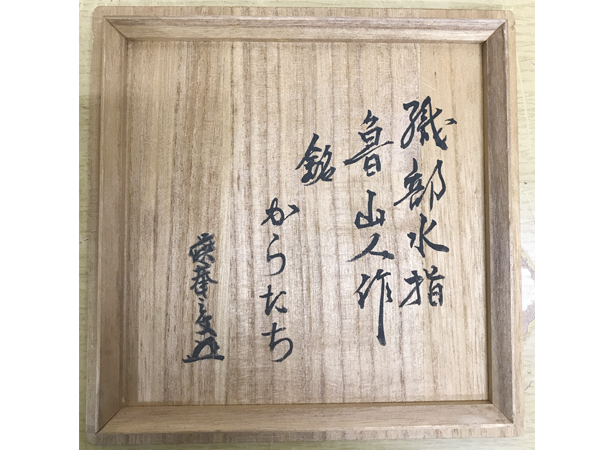 織部水指
魯山人作
銘
からたち